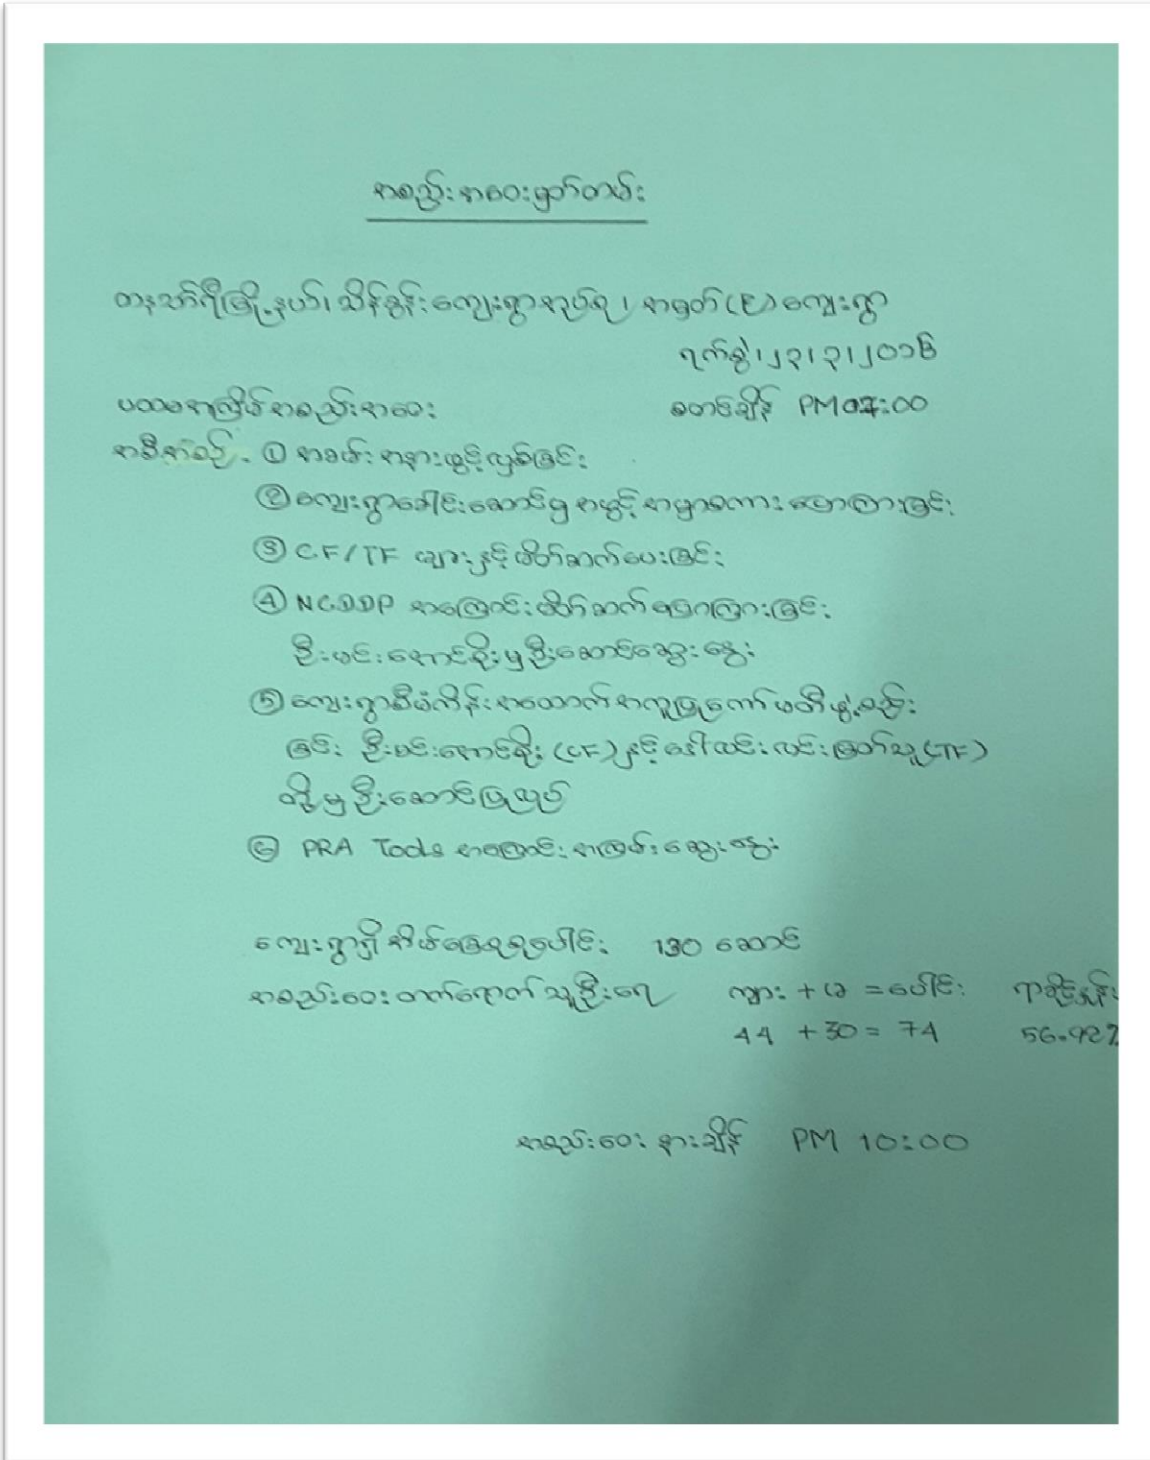 အစည်းအဝေးမှတ်တမ်း
တနင်္သာရီမြို့နယ်၊ သိန်ခွန်းကျေးရွာအုပ်စု၊ အမှတ်(၉)ကျေးရွာ
ရက်စွဲ၊ ၂၃၊ ၃၊ ၂၀၁၆
ပထမအကြိမ်အစည်းအဝေး စတင်ချိန် PM 07:00
အစီအစဉ် - ① အခမ်းအနားဖွင့်လှစ်ခြင်း
② ကျေးရွာခေါင်းဆောင်မှ အဖွင့်အမှာစကား ပြောကြားခြင်း
③ CF/TF များနှင့်မိတ်ဆက်ပေးခြင်း
④ NCDDP အကြောင်းမိတ်ဆက်ပြောကြားခြင်း
ဦးမင်းအောင်စိုးမှဦးဆောင်ဆွေးနွေး
⑤ ကျေးရွာစီမံကိန်းအထောက်အကူပြုကော်မတီဖွဲ့စည်း
ခြင်း ဦးမင်းအောင်စိုး (CF) နှင့် ဒေါ်လင်းလင်းမြတ်သူ (TF)
တို့မှဦးဆောင်ပြုလုပ်
⑥ PRA Tools အကြောင်းအကြမ်းဆွေးနွေး
ကျေးရွာရှိအိမ်ခြေစုစုပေါင်း 130 ဆောင်
အစည်းဝေးတက်ရောက်သူဦးရေ ကျား + မ = ပေါင်း ရာခိုင်နှုန်း
44 + 30 = 74 56.92%
အစည်းဝေး နားချိန် PM 10:00